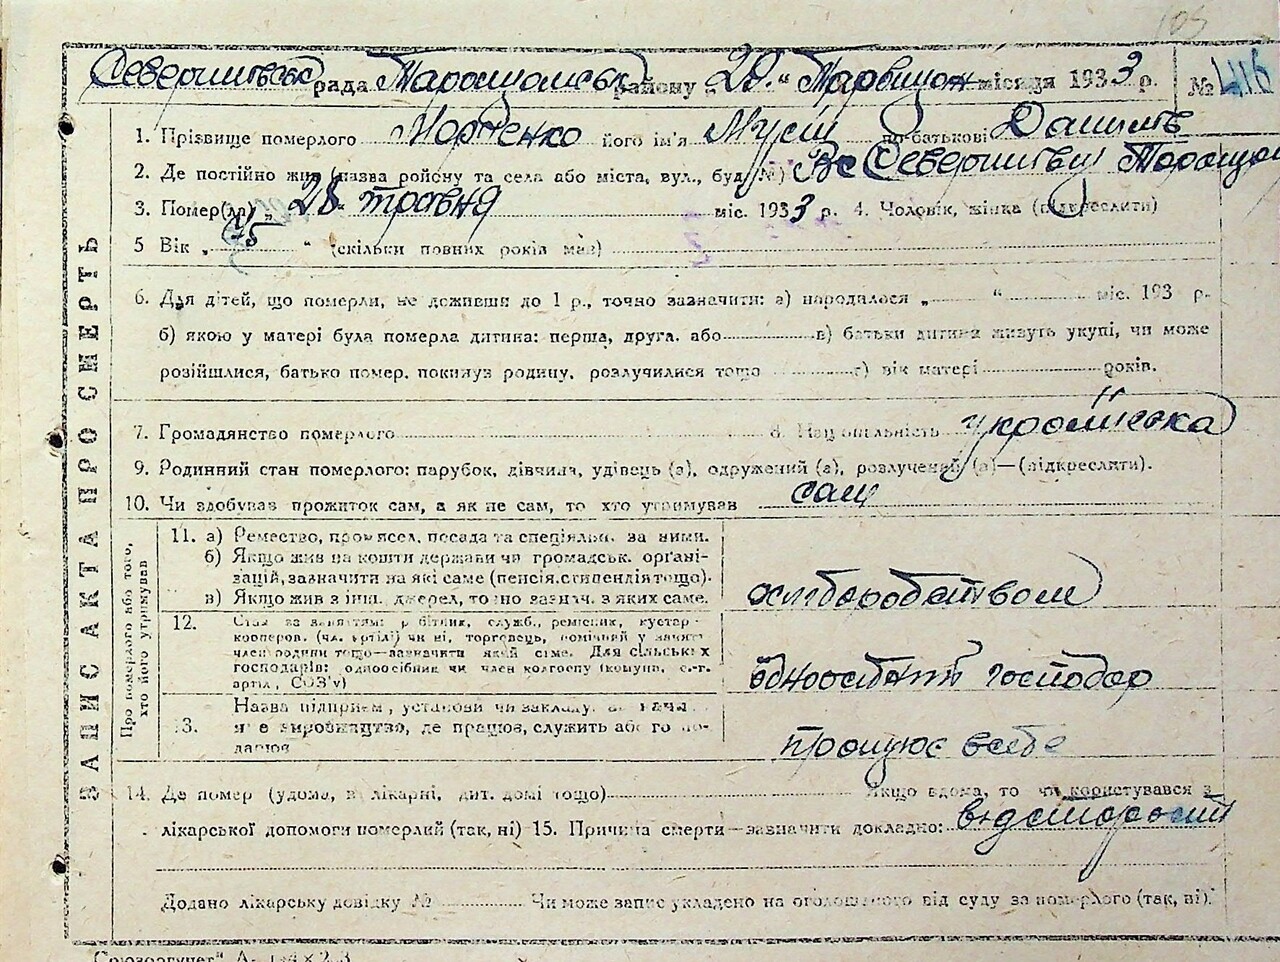 105
рада Таращанськ району „ 29. “ місяця 1933 р. № 416
1. Прізвище померлого його ім'я Мусій по-батькові Данил
2. Де постійно жив (назва району та села або міста, вул., буд. №)
3. Помер(ла) „ 28 “ травня міс. 1933 р. 4. Чоловік, жінка (підкреслити)
5 Вік „ 75 “ (скільки повних років мав)
6. Для дітей, що померли, не доживши до 1 р., точно зазначити: а) народилося „ “ міс. 193 р.
б) якою у матері була померла дитина: перша, друга, або в) батьки дитини живуть укупі, чи може
розійшлися, батько помер, покинув родину, розлучилися тощо г) вік матері років.
7. Громадянство померлого 8. Національність українська
9. Родинний стан померлого: парубок, дівчина, удівець (а), одружений (а), розлучений (а)—(підкреслити).
10. Чи здобував прожиток сам, а як не сам, то хто утримував сам
ЗАПИС АКТА ПРО СМЕРТЬ
Про померлого або того,
хто його утримував
11. а) Ремество, промисел, посада та спеціяльн. за ними.
б) Якщо жив на кошти держави чи громадськ. органі-
зацій, зазначити на які саме (пенсія, стипендія тощо).
в) Якщо жив з інш. джерел, точно зазнач. з яких саме.
хліборобством
12. Стан за заняттям: робітник, служб., ремісник, кустар-
кооперов. (чл. артілі) чи ні, торговець, помічний у занятт
член родини тощо—зазначити який саме. Для сільських
господарів: одноосібник чи член колгоспу (комуна, с.-г.
артіл, СОЗ'у)
господар
13. Назва підприєм., установи чи закладу,
виробництво, де працює, служить або го по-
дарює
працює в себе
14. Де помер (удома, в лікарні, дит. домі тощо) Якщо вдома, то чи користувався з
лікарської допомоги померлий (так, ні) 15. Причина смерти—зазначити докладно: від старості
Додано лікарську довідку № Чи може запис укладено на оголошеного від суду за померлого (так, ні).